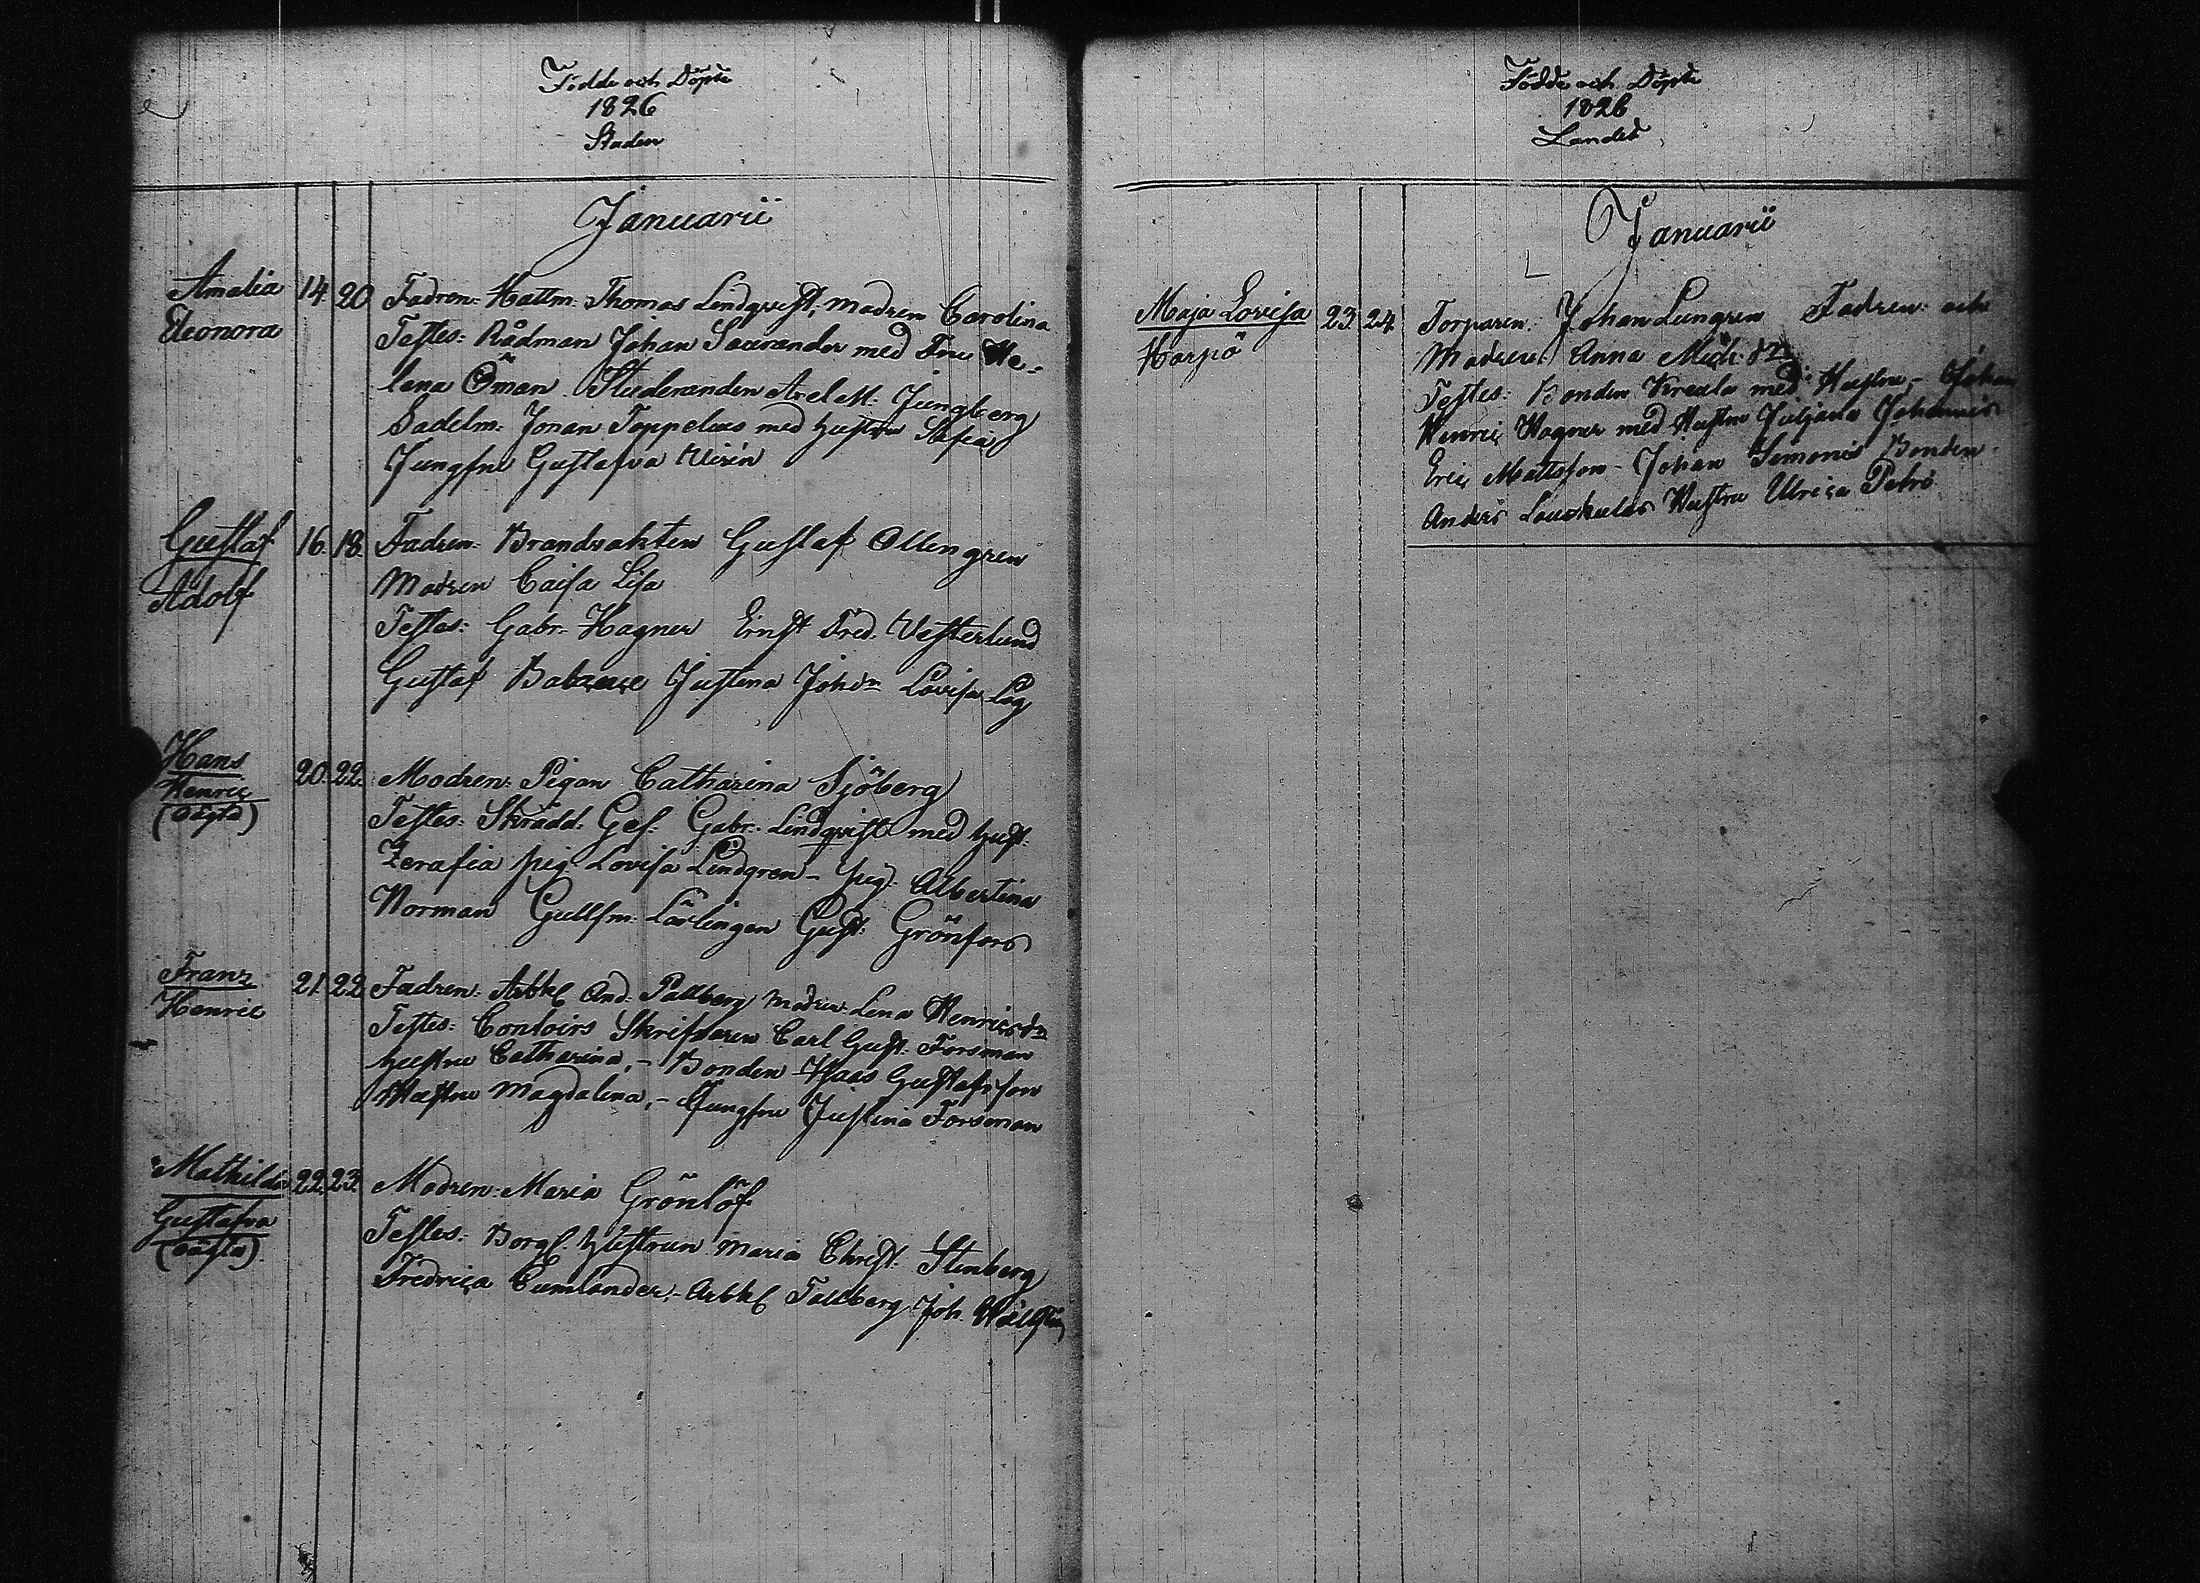 Födde och Döpte
1826
Staden
Januarii
Amalia 14 20 Fadren: Hattm: Thomas Lindqvist, modren Carolina
Eleonora Testes: Rådman Johan Saurander med Fru He-
lena Öman Studeranden Axel M: Jungberg
Sadelm: Jonan Toppelius med hustru Sofia
Jungfru Gustafva Wirén
Gustaf 16. 18. Fadren: Brandvakten Gustaf Ollengren
Adolf Modren Caisa Lisa
Testes: Gabr. Hagner Ernst Fred. Vesterlund
Gustaf Justina Joh:dn Lovisa Lög
Hans 20. 22. Modren: Pigan Catharina Sjöberg
Henric Testes: Skrädd: Ges: Gabr: Lindqvist med hust:
(oägta) Zerafia pig. Lovisa Lindgren - pig: Albertina
Norman Gullsm: Lärlingen Gust: Grönfors
Franz 21. 22 Fadren: Arbk And: Pallberg modren Lena Henricsdn
Henric Testes: Contoirs Skrifvaren Carl Gust: Forsman
hustru Catharina, - Bonden Gustafsson
Hustru Magdalena, - Jungfru Justina Forsman
Mathilda 22. 23. Modren: Maria Grönlöf
Gustafva Testes: Borg. hustrun Maria Christ: Stenberg
(oägta) Fredrica Cumlander, - Arbk Tallberg Joh.
Födde och Döpte
1826
Landet
Januarii
Maja Lovisa 23. 24. Torparen: Johan Lungren Fadren: och
Harjiö Modren: Anna Mich:dn
Testes: Bonden Kreula med Hustru, - Johan
Henric Wagner med Hustru Juljana Johannis
Eric Mattsson - Johan Simonis Bonden
Anders Hustru Ulrica Petrs